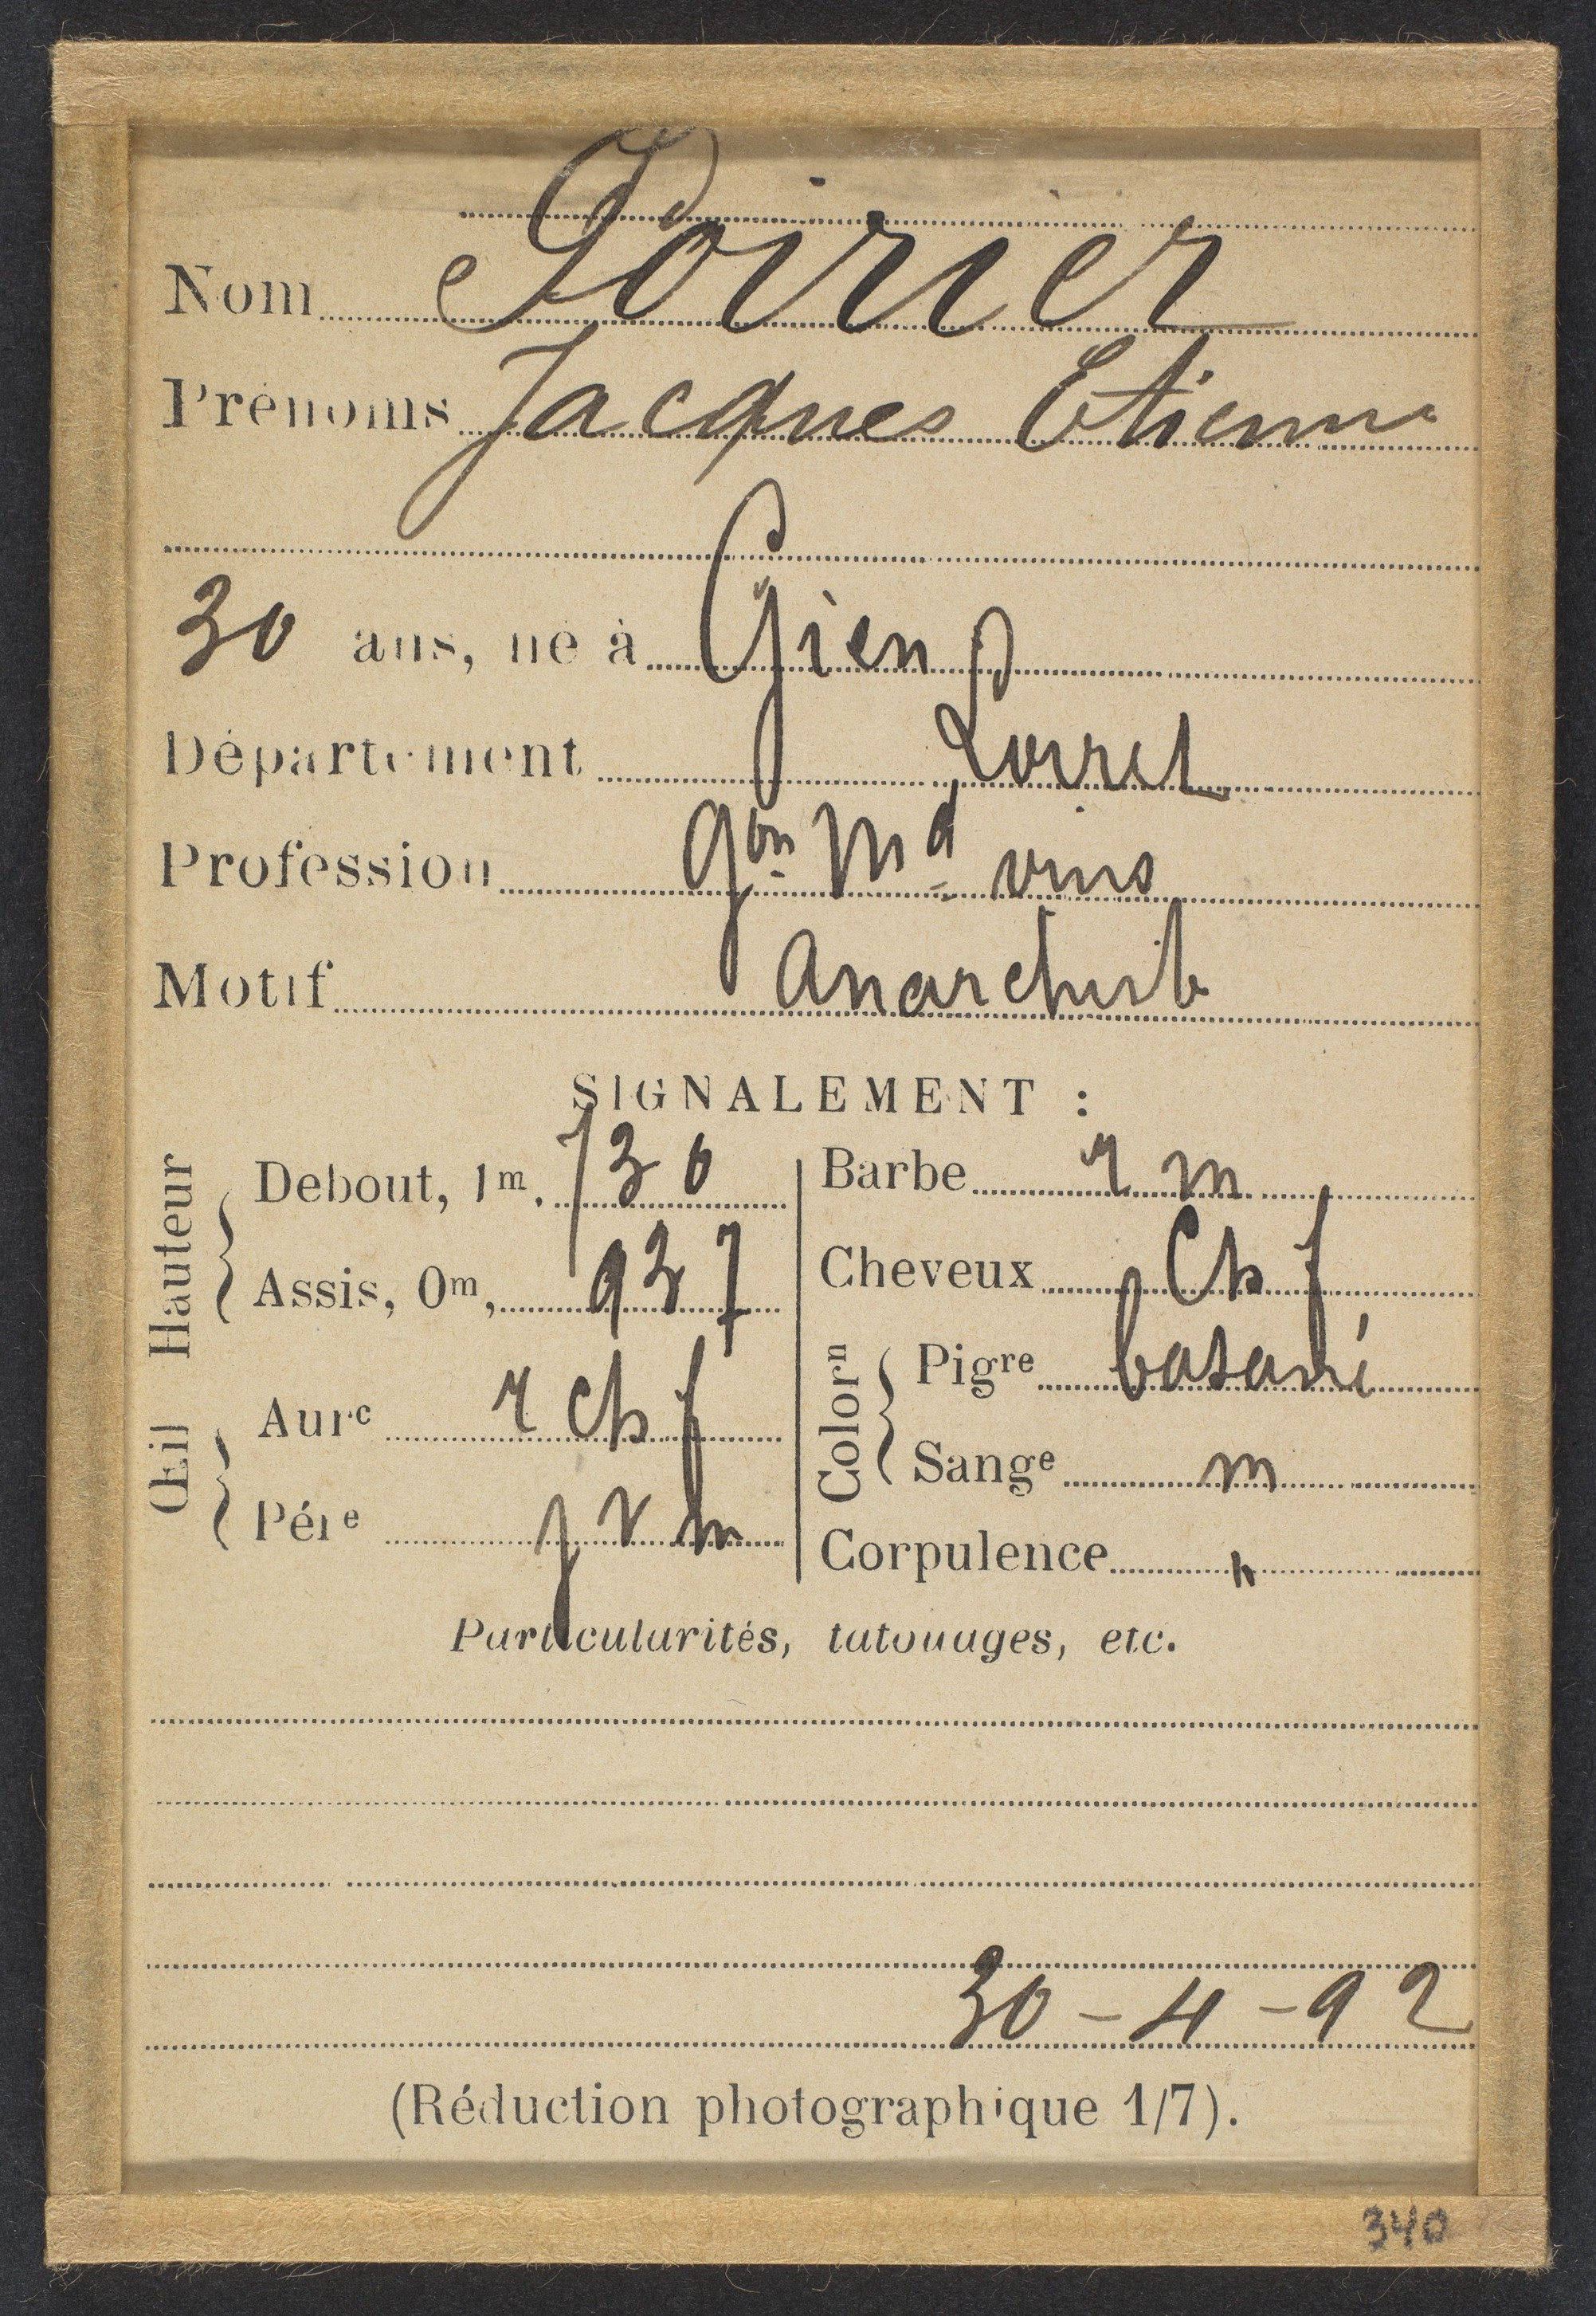 Nom Poirier
Prénoms Jacques Etienne
30 ans, né à Gien
Département Loiret
Profession gon Md vins
Motif Anarchiste
SIGNALEMENT :
Hauteur
Debout, 1m, 730
Assis, 0m, 937
Œil
Aurc r ch f
Pére j v m
Barbe r m
Cheveux Ch f
Colorn
Pigre basané
Sange m
Corpulence
Particularités, tatouages, etc.
30-4-92
(Réduction photographique 1/7).
340